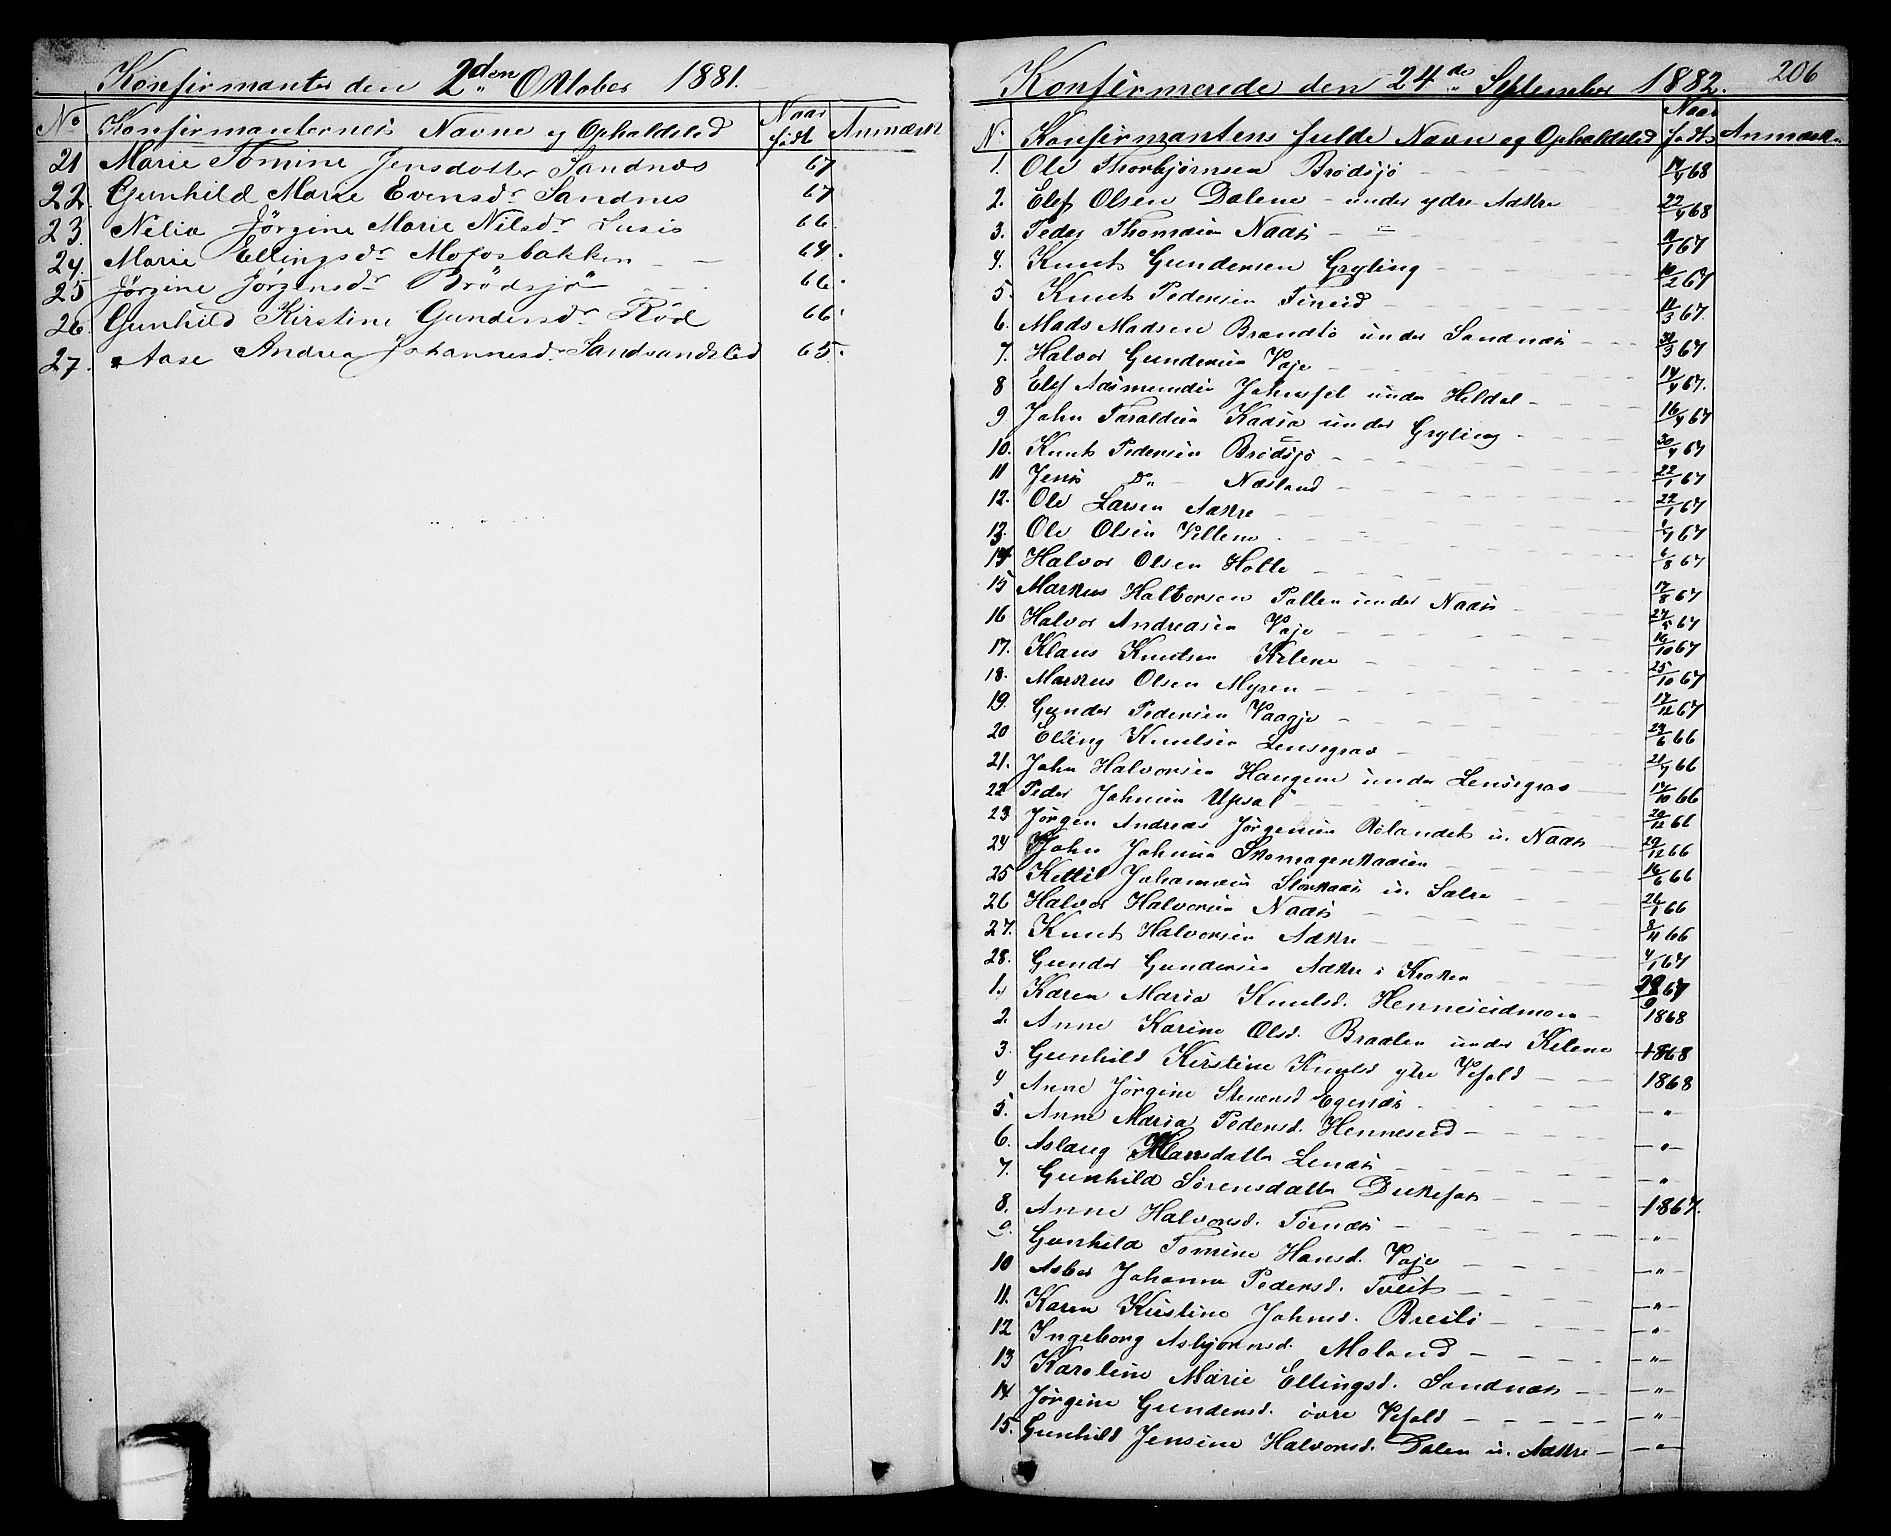 Konfirmanter den 2den Oktober 1881.
No Konfirmanternes Navne og Opholdsted Naar födt Anmærk
21 Marie Tomine Jensdatter Sandnæs 67
22. Gunhild Marie Evensdr Sandnes 67
23. Nilia Jörgine Marie Nilsdr 66.
24. Marie Ellingsdr Mofosbakken 64.
25 Jörgine Jörgensdr Brödsjö 66.
26. Gunhild Kirstine Gundersdr Röd 66.
27. Aase Andrea Johannesd. Sandsandsled 65.
206
Konfirmerede den 24de September 1882.
N. Konfirmantens fulde Navn og Opholdsted Naar födt Anmærk
1. Ole Thorbjørnsen Brødsjø 14/4 68
2. Elef Olsen Dalene under ydre Aakre 22/4 68
3. Peder Thomesen Naæs 11/1 67
4. Knut Gundersen Gryting 10/2 67
5. Knut Pedersen Fineid 11/3 67.
6. Mads Madsen Brandtø under Sandnæs 30/3 67
7. Halvor Gundersen Vaje 14/4 67.
8 Elef Aasmundsen Johnsfet under Heldal 16/4 67
9 John Taraldsen Kaasa under Gryting 30/4 67
10. Knut Pedersen Brødsjø 22/1 67
11 Jens Do Næsland 22/1 67
12. Ole Larsen Aakre
13. Ole Olsen Villene 67
14 Halvor Olsen Holte 6/8 67
15 Markus Halvorsen Pollen under Naæs 17/8 67
16 Halvor Andreasen Vaje 27/5 67
17. Klaus Knutsen Kilene 16/10 67
18. Markus Olsen Myren 25/10 67
19. Gunder Pedersen Vaagje 17/12 67
20 Elling Knutsen Lensegrav 29/6 66
21. John Halvorsen Haugene under Lensegrav 21/7 66
22 Peder Johnsen Upsal 17/10 66
23 Jørgen Andreas Jørgensen Rølandet u. Naæs 20/12 66
24 John Johnsen Skomagerkaasen 20/12 66
25 Kittil Johannesen Storkaas u. Salve 16/6 66
26 Halvor Halvorsen Naæs 26/1 66
27. Knut Halvorsen Aakre 8/11 66
28. Gunder Gundersen Aakre i Kroken 4/1 67
1. Karen Maria Knutsd. Henneseidmoen 29/9 67
2. Anne Karine Olsd. Braaten under Kilene 1868
3. Gunhild Kirstine Knutsd ytre Vefald 1868
4 Anne Jørgine Stenersd Egenæs 1868
5. Anne Maria Pedersd. Henneseid "
6. Aslaug Hansdatter Lenæs "
7. Gunhild Sørensdatter Dukefos "
8. Anne Halvorsd. Törnæs 1867.
9. Gunhild Tomine Hansd. Vaje "
10 Asber Johanne Pedersd. Tveit "
11. Karen Kirstine Johnsd. Breili "
12 Ingeborg Asbjørnsd. Moland "
13 Karoline Marie Ellingsd. Sandnæs "
14 Jørgine Gundersd. övre Vefald "
15. Gunhild Jensine Halvorsd. Dalen u. Aakre "